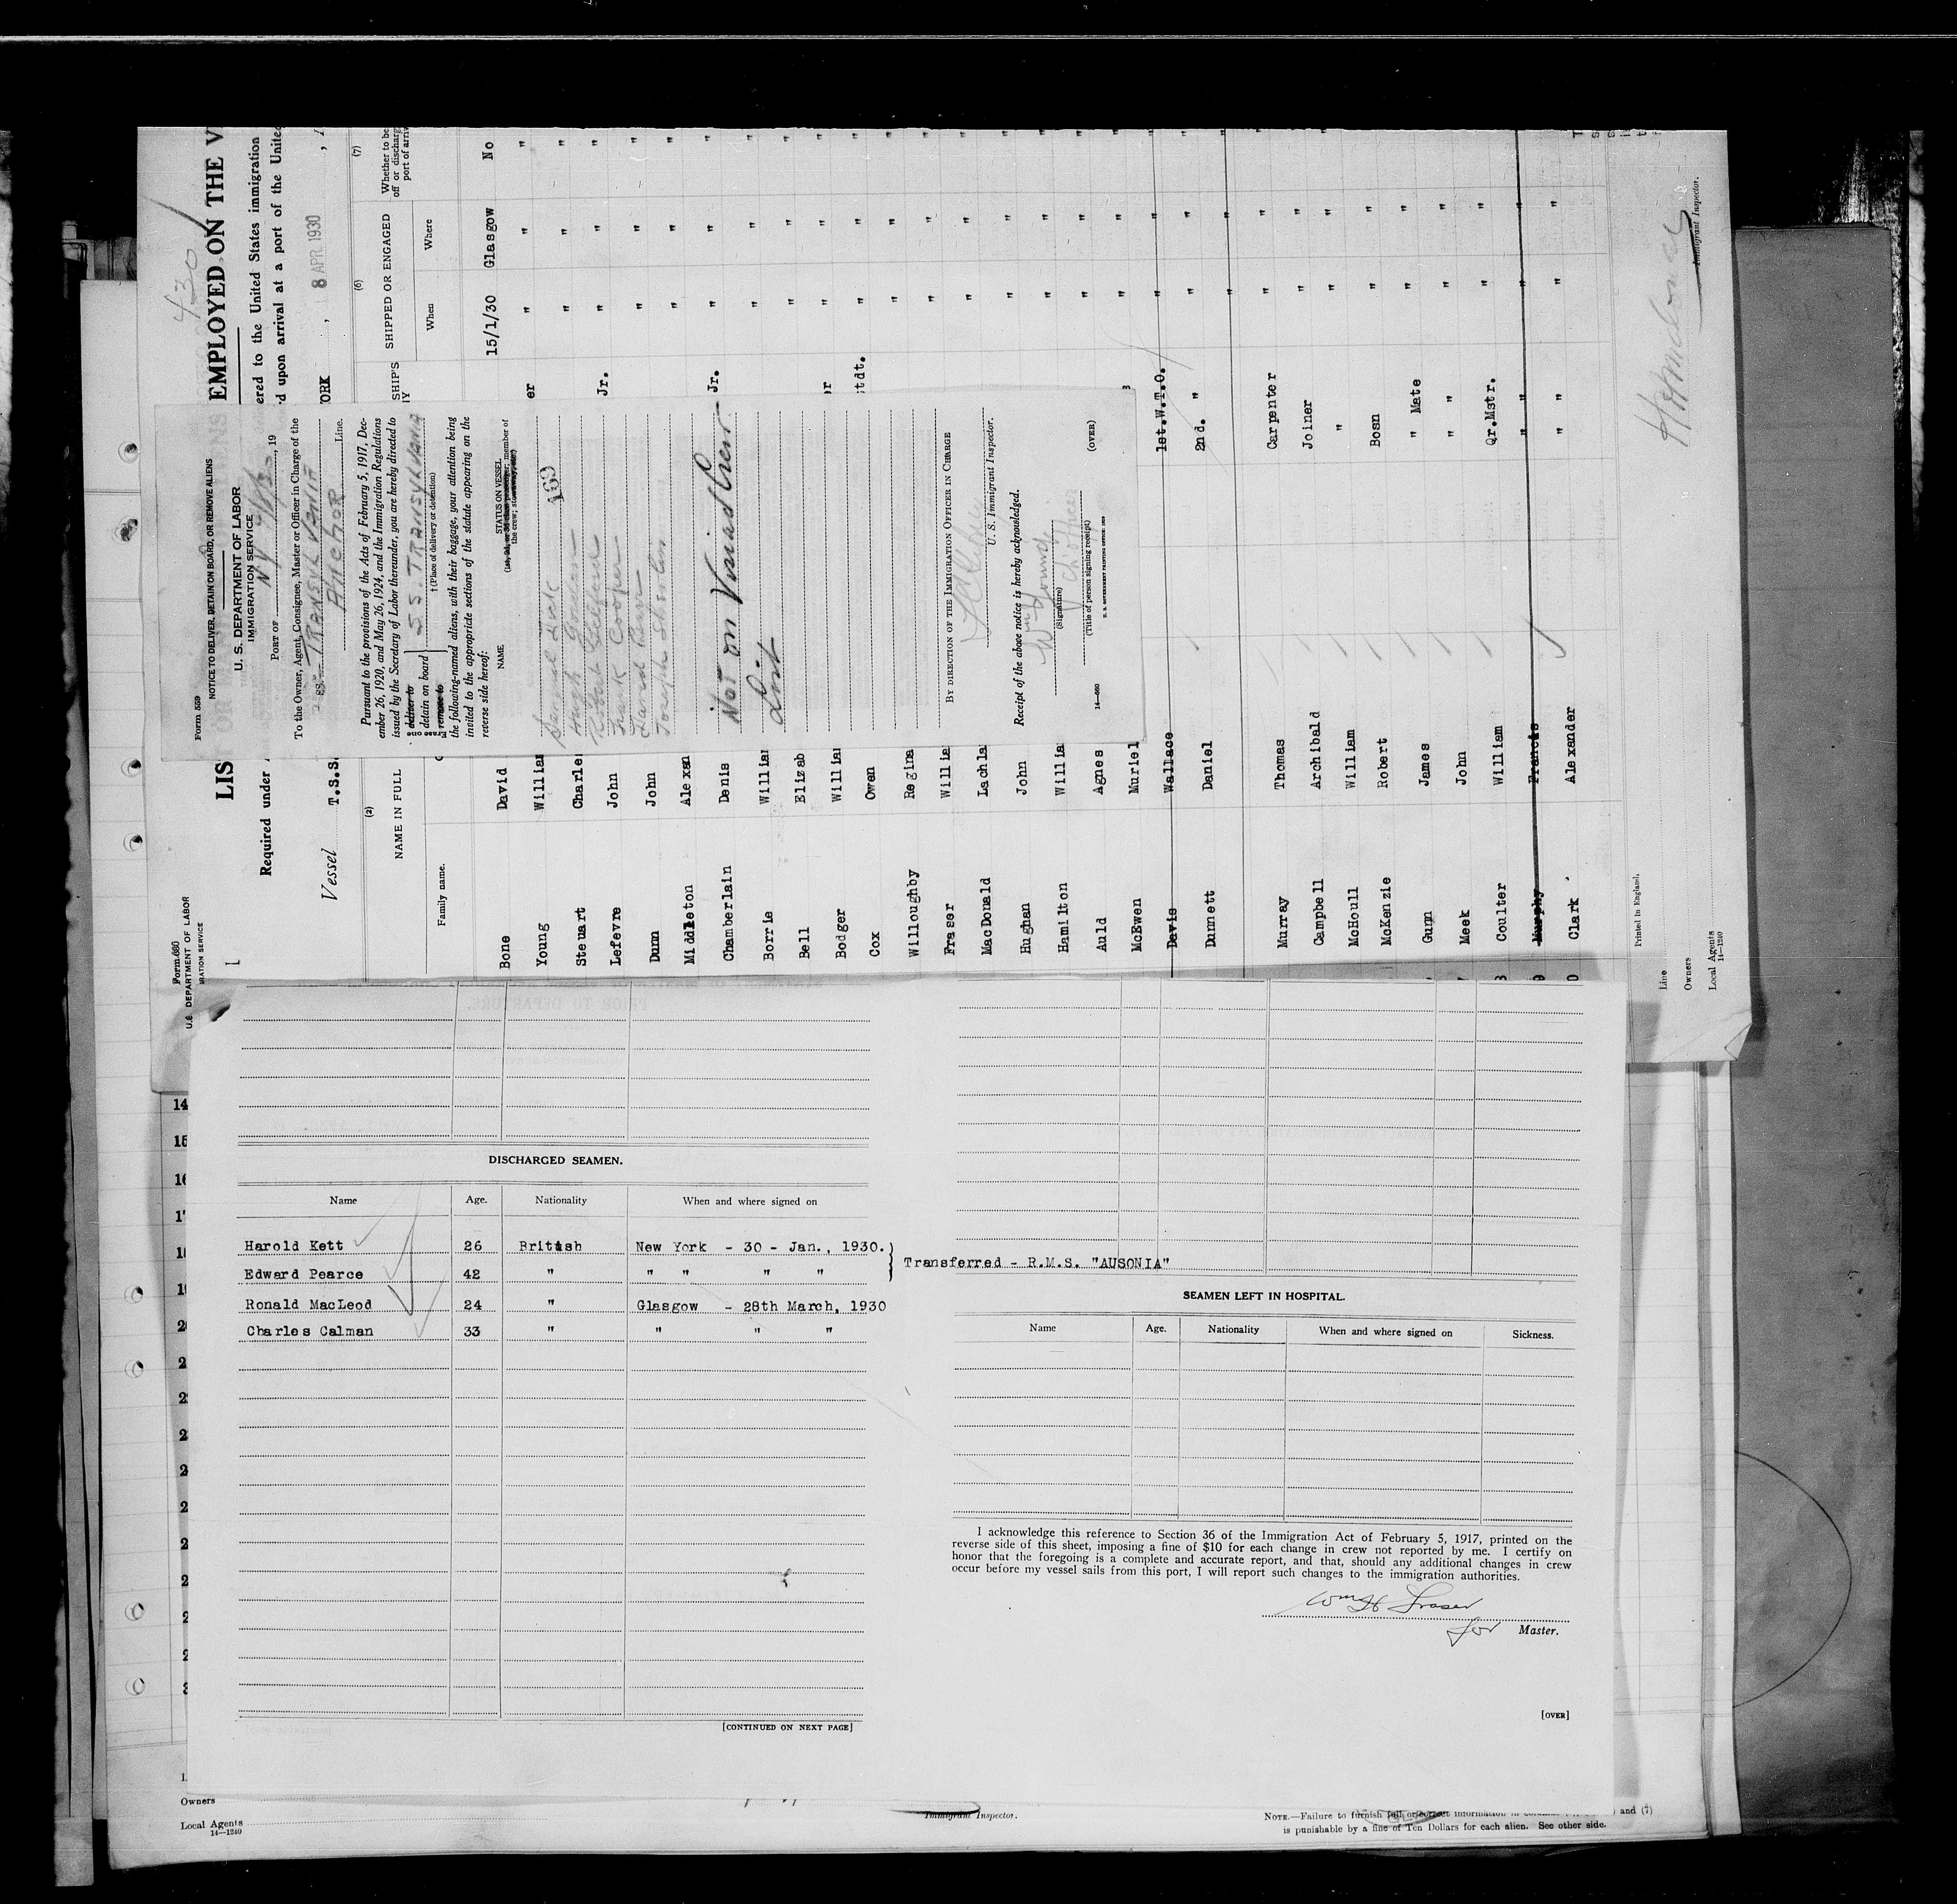 Form 680
U.S. DEPARTMENT OF LABOR
IMMIGRATION SERVICE
EMPLOYED ON THE V
Required under
ered to the United States immigration
d upon arrival at a port of the United
Vessel T.S.S.
ORK , 8 APR 1930
(2)
NAME IN FULL
Family name.
SHIP'S
(6)
SHIPPED OR ENGAGED
When
Where
(7)
Whether to be
off or discharg
port of arriv
Bone David 15/1/30 Glasgow No
Young William er " " "
Steuart Charles " " "
Lefevre John Jr. " " "
Dunn John " " "
Middleton Alexan " " "
Chamberlain Denis Jr. " " "
Borrie William " " "
Bell Elizab " " "
Bodger William " " "
Cox Owen tdt. " " "
Willoughby Regina " " "
Fraser Willia " " "
MacDonald Lachla " " "
Hughan John " " "
Hamilton Willia " " "
Auld Agnes " " "
McEwen Muriel " " "
Davis Wallace 1st.W.T.O. " " "
Dunnett Daniel 2nd. " " " "
Murray Thomas Carpenter " "
Campbell Archibald Joiner " "
McHoull William " " "
McKenzie Robert Bosn " "
Gunn James " Mate " "
Meek John " " " "
Coulter William Qr.Mstr. " "
Murphy Francis " " " "
Clark Alexander " " " "
Printed in England.
Line
Owners
Local Agents
14—1240
Immigrant Inspector.
Form 559
NOTICE TO DELIVER, DETAIN ON BOARD, OR REMOVE ALIENS
U. S. DEPARTMENT OF LABOR
IMMIGRATION SERVICE
PORT OF N Y , 19
To the Owner, Agent, Consignee, Master or Officer in Charge of the
SS TRANSYLVANIA
Anchor Line.
Pursuant to the provisions of the Acts of February 5, 1917, Dec-
ember 26, 1920, and May 26, 1924, and the Immigration Regulations
issued by the Secretary of Labor thereunder, you are hereby directed to
deliver to
detain on board S S. TRANSYLVANIA
remove to
†(Place of delivery or detention)
the following-named aliens, with their baggage, your attention being
invited to the appropriate sections of the statute appearing on the
reverse side hereof:
NAME
STATUS ON VESSEL
member of
the crew;
169
Hugh
Frank Cooper
Joseph
Not on Visaed Crew
List
BY DIRECTION OF THE IMMIGRATION OFFICER IN CHARGE
U. S. Immigrant Inspector.
Receipt of the above notice is hereby acknowledged.
Wm Young
(Signature)
Ch Officer
(Title of person signing receipt)
14—560
U. S. GOVERNMENT PRINTING OFFICE: 1929
(OVER)
DISCHARGED SEAMEN.
Name Age. Nationality When and where signed on
Harold Kett 26 British New York - 30 - Jan., 1930.
Edward Pearce 42 " " " " "
Transferred - R.M.S. "AUSONIA"
Ronald MacLeod 24 " Glasgow - 28th March, 1930
Charles Calman 33 " " " "
[CONTINUED ON NEXT PAGE]
SEAMEN LEFT IN HOSPITAL.
Name Age. Nationality When and where signed on Sickness.
I acknowledge this reference to Section 36 of the Immigration Act of February 5, 1917, printed on the
reverse side of this sheet, imposing a fine of $10 for each change in crew not reported by me. I certify on
honor that the foregoing is a complete and accurate report, and that, should any additional changes in crew
occur before my vessel sails from this port, I will report such changes to the immigration authorities.
Wm H Fraser
for Master.
[OVER]
14
15
Owners
Local Agents
14—1240
Immigrant Inspector.
NOTE.—Failure to furnish full or correct information in columns and (7)
is punishable by a fine of Ten Dollars for each alien. See other side.